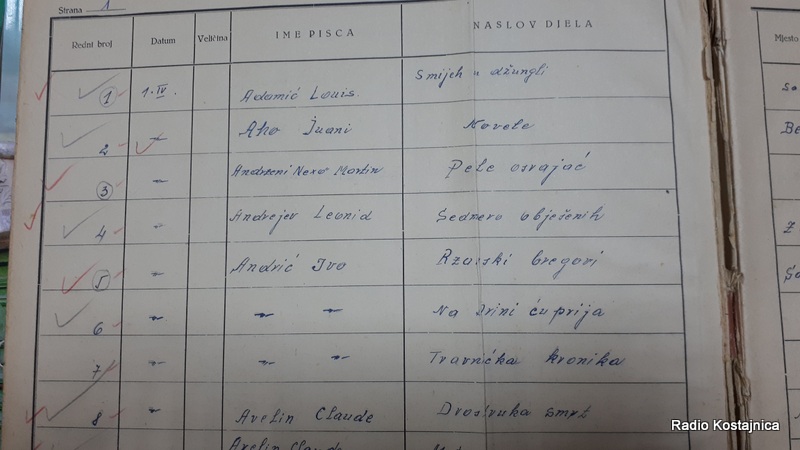 Strana 1
Redni broj Datum Veličina IME PISCA NASLOV DJELA Mjesto
1 1. IV. Adamić Louis. Smijeh u džungli
2 -"- Aho Juani Novele
3 -"- Andrseni Nexo Martin Pele osvajač
4 -"- Andrejev Leonid Sedmero obješenih
5 -"- Andrić Ivo Rzavski bregovi
6 -"- -"- -"- Na Drini ćuprija
7 -"- -"- -"- Travnička kronika
8 -"- Avelin Claude Dvostruka smrt
Avelin Claude
Radio Kostajnica